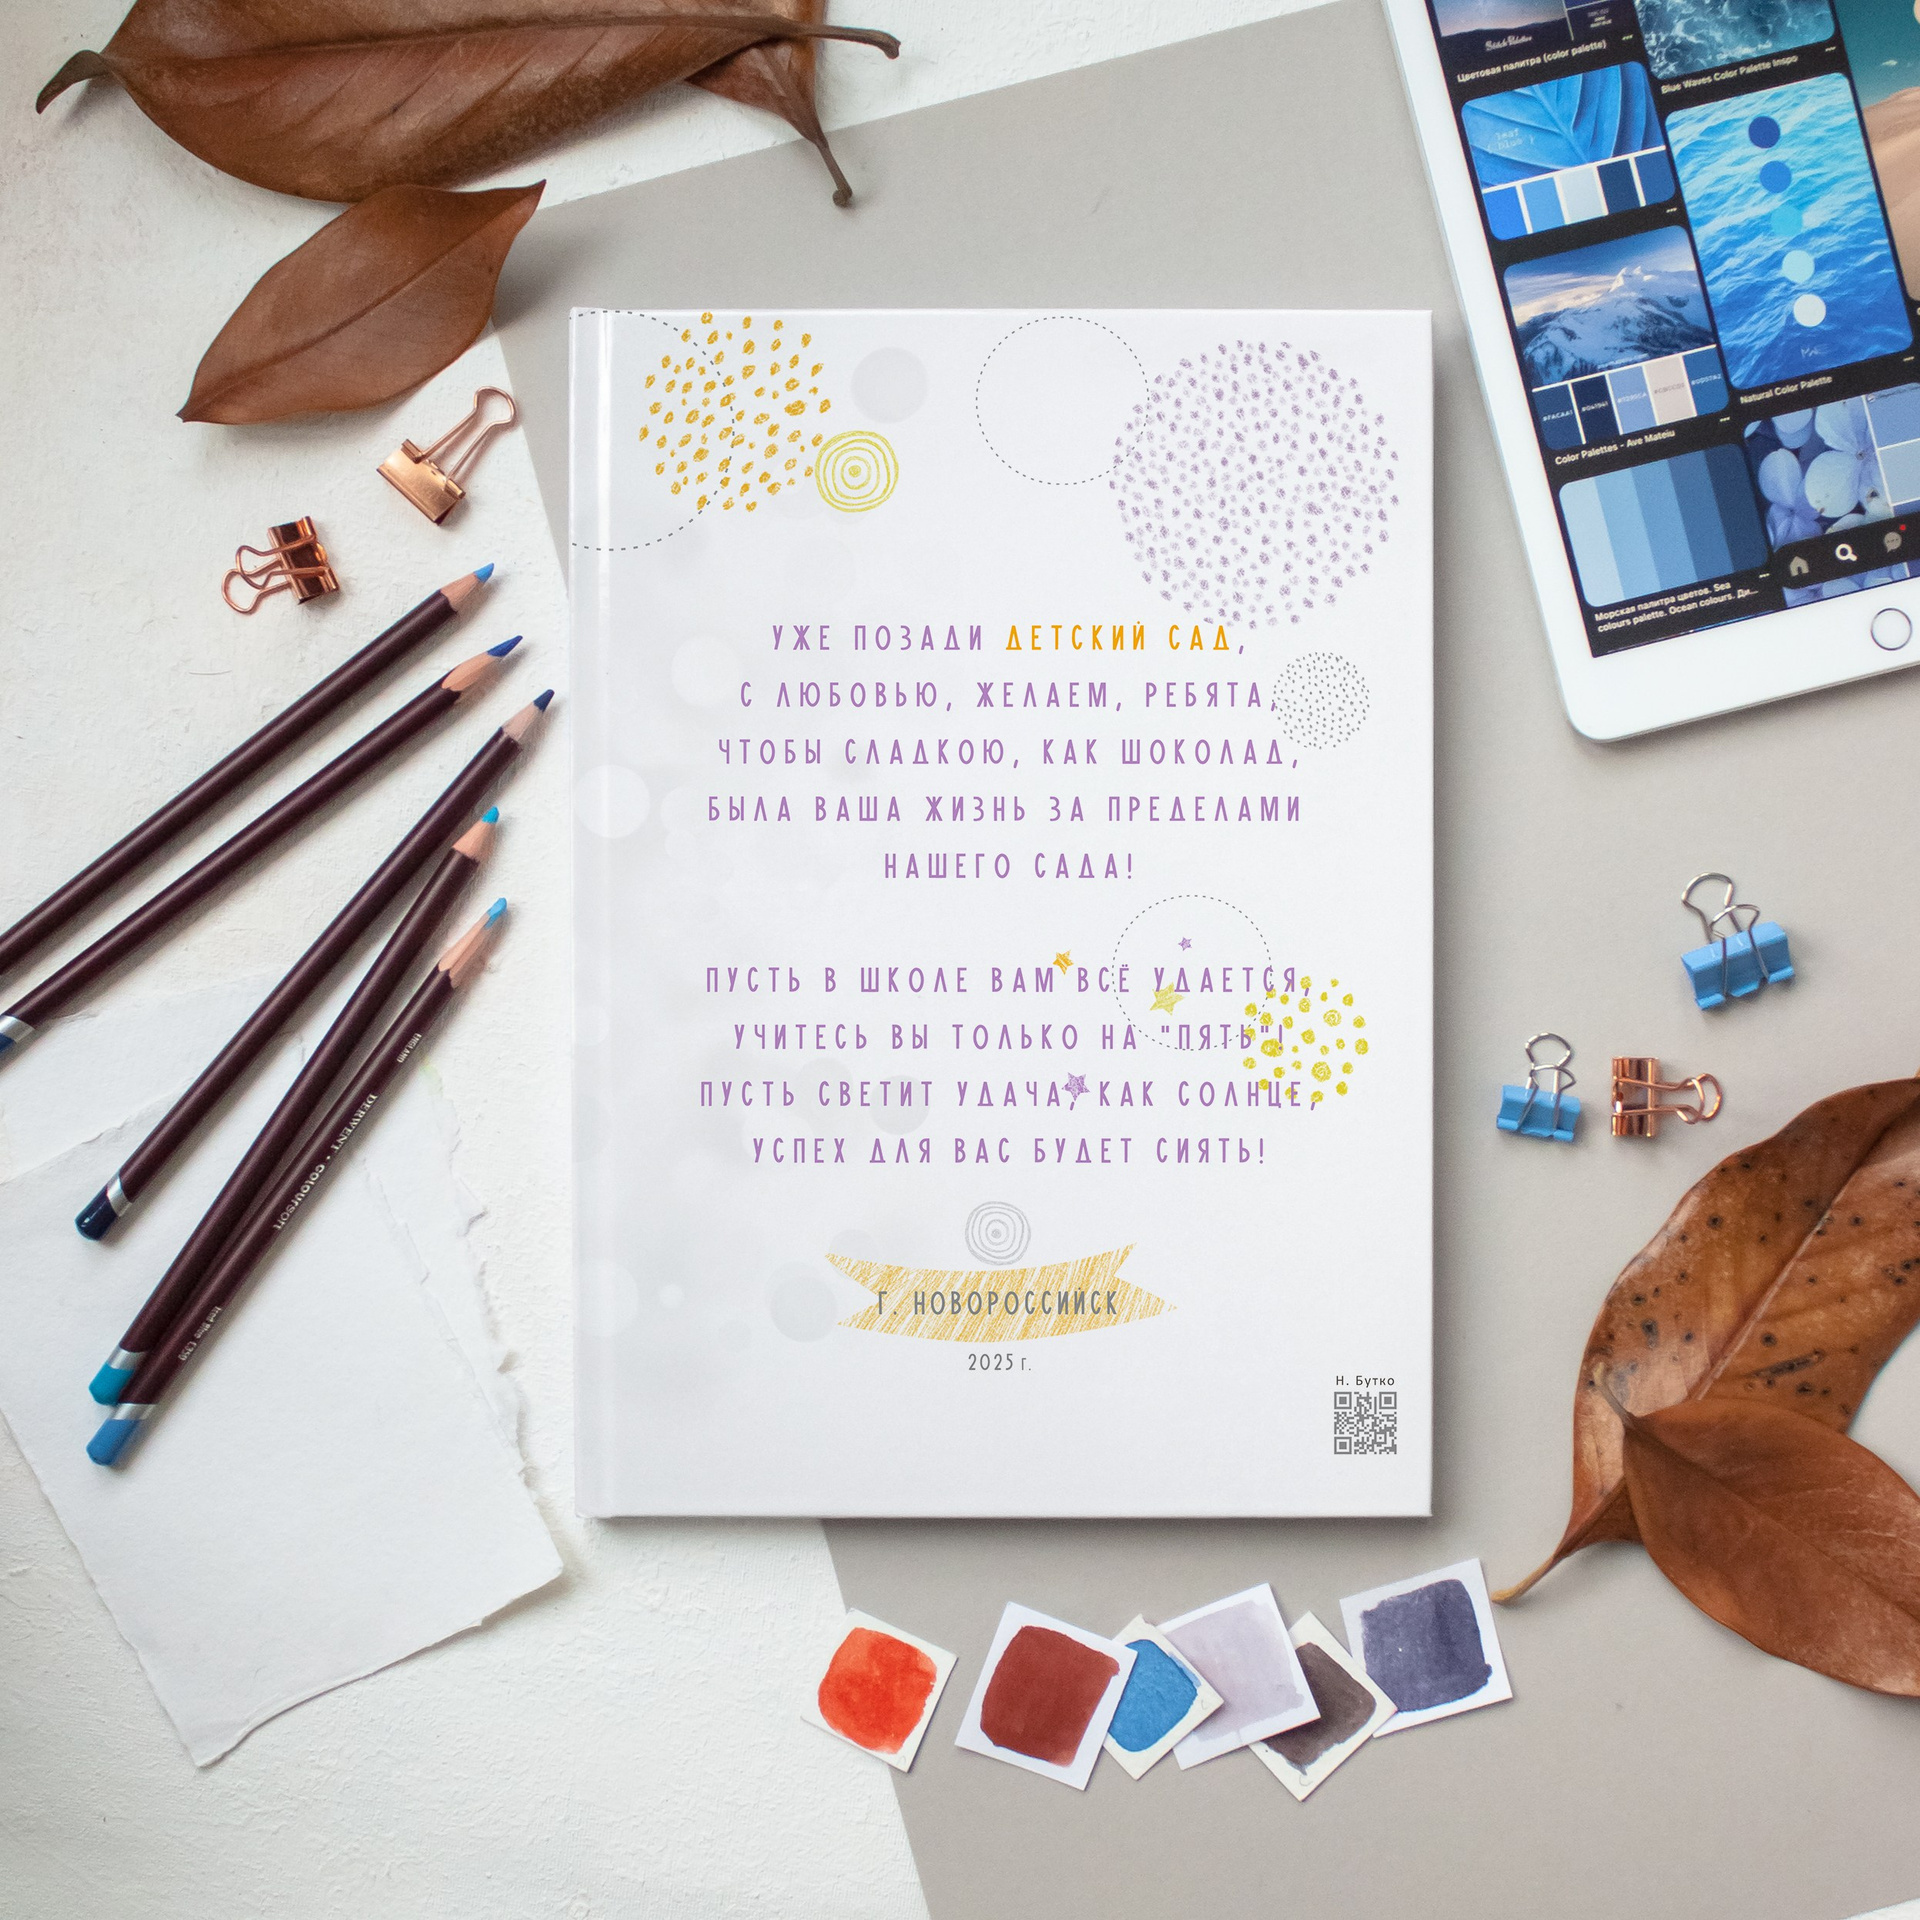 Stitch Palettes
Цветовая палитра (color palette)
Blue Waves Color Palette Inspo
leaf
blue
Color Palettes - Ave Mateiu
Natural Color Palette
Морская палитра цветов. Sea
colours palette. Ocean colours. Ди...
УЖЕ ПОЗАДИ ДЕТСКИЙ САД,
С ЛЮБОВЬЮ, ЖЕЛАЕМ, РЕБЯТА,
ЧТОБЫ СЛАДКОЮ, КАК ШОКОЛАД,
БЫЛА ВАША ЖИЗНЬ ЗА ПРЕДЕЛАМИ
НАШЕГО САДА!
ПУСТЬ В ШКОЛЕ ВАМ ВСЁ УДАЕТСЯ,
УЧИТЕСЬ ВЫ ТОЛЬКО НА "ПЯТЬ"!
ПУСТЬ СВЕТИТ УДАЧА, КАК СОЛНЦЕ,
УСПЕХ ДЛЯ ВАС БУДЕТ СИЯТЬ!
Г. НОВОРОССИЙСК
2025 г.
Н. Бутко
DERWENT · COLOURSOFT
ENGLAND